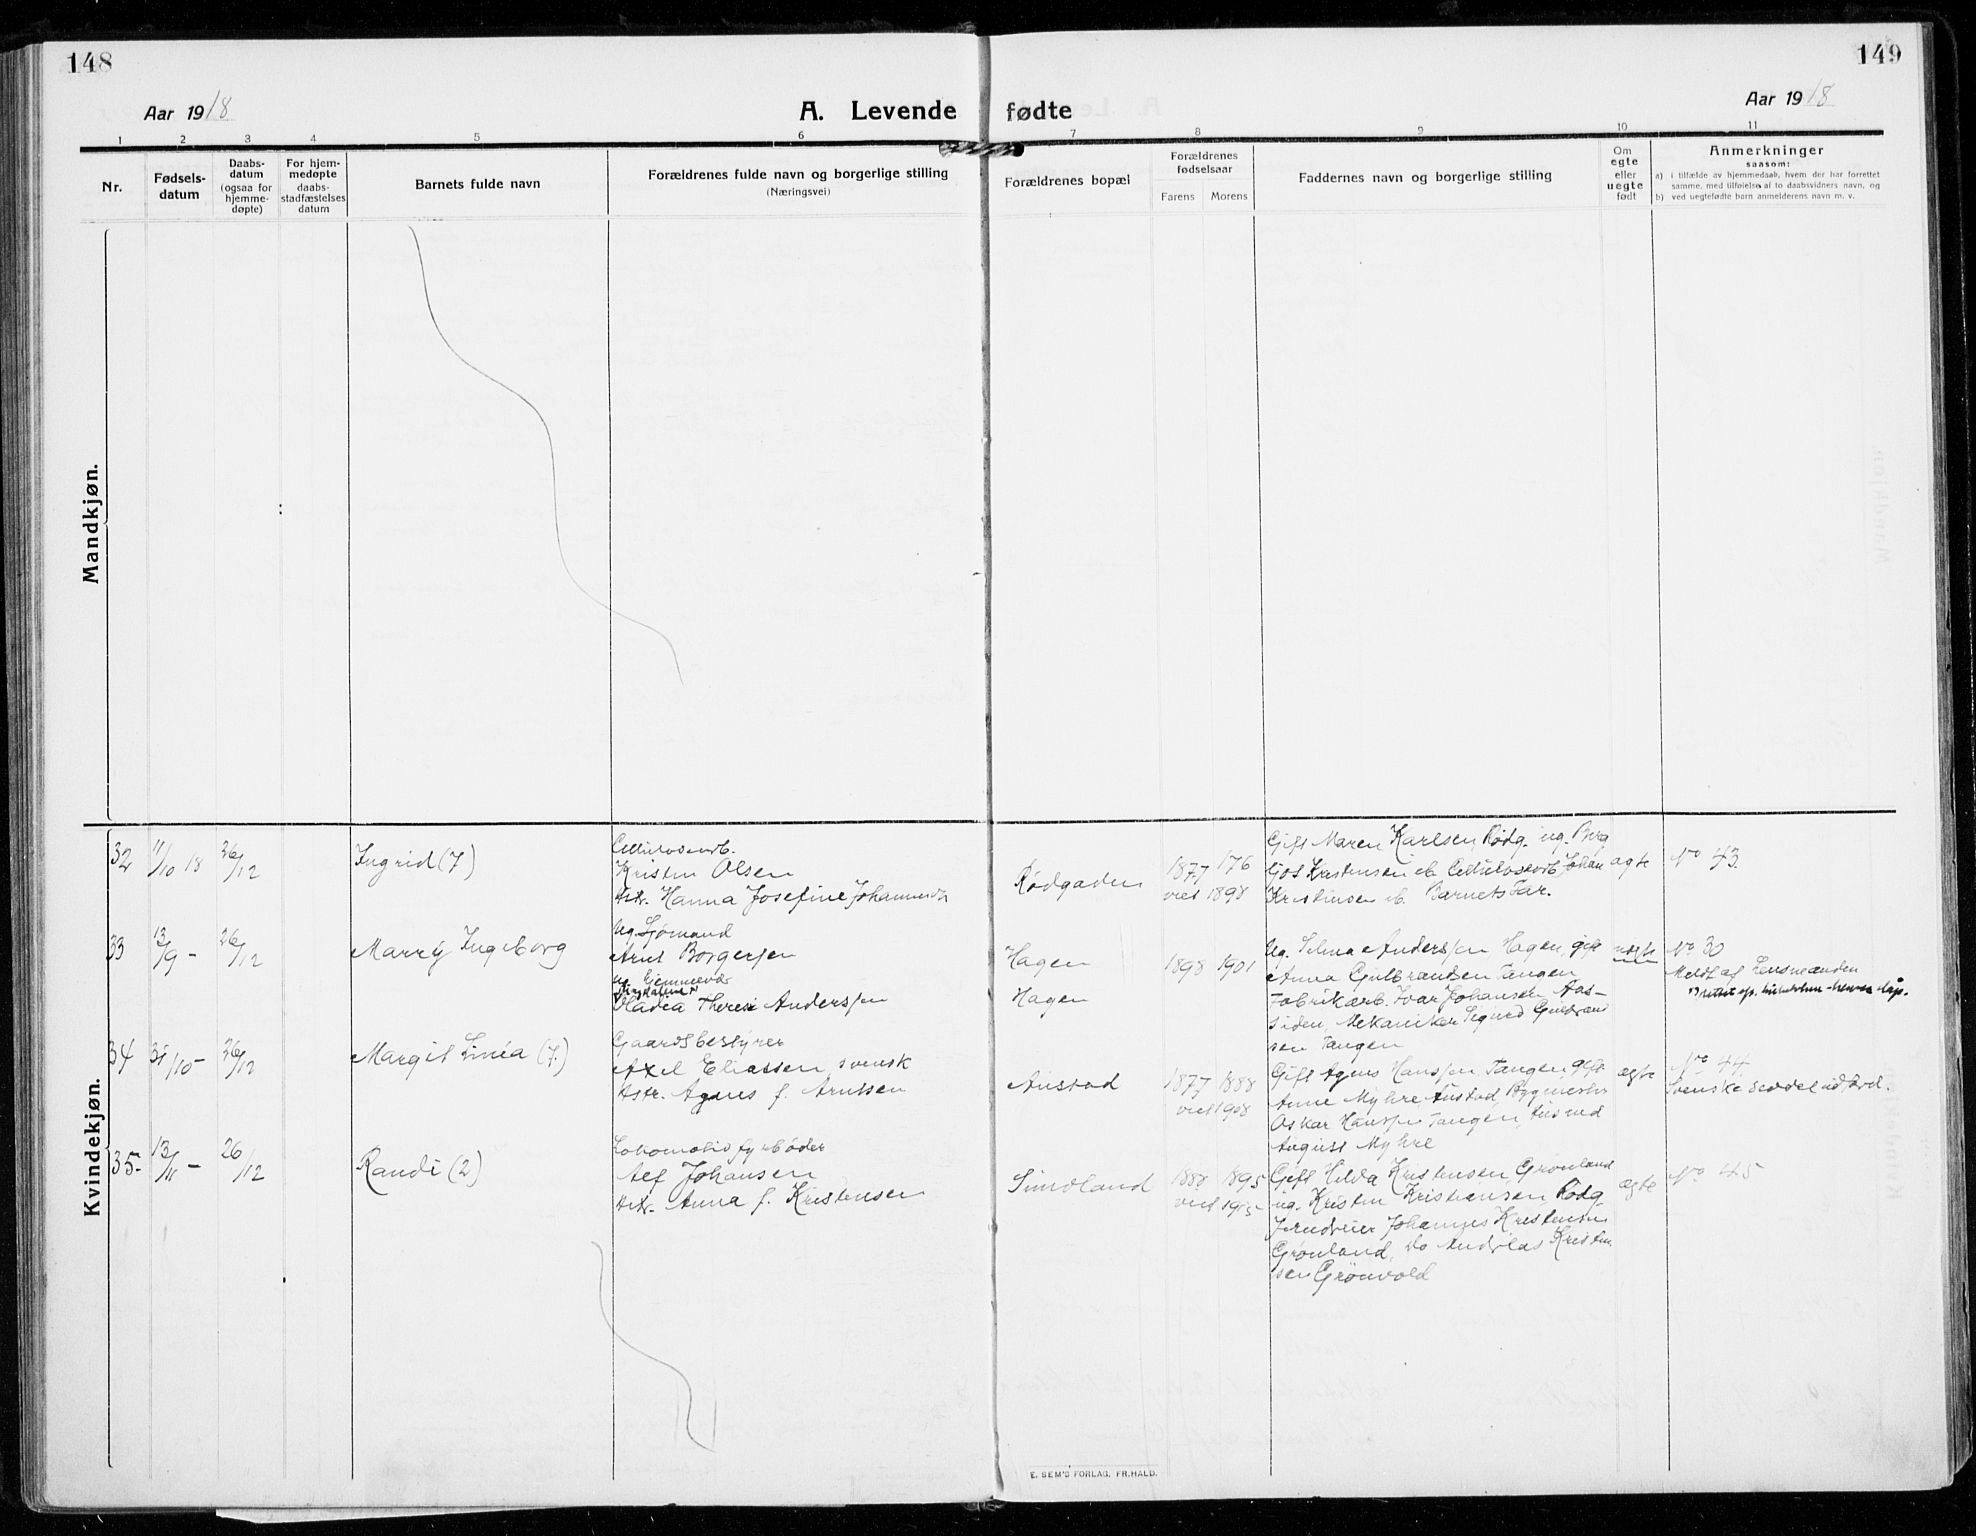 148
149
Aar 1918
A. Levende fødte
Aar 1918
1 2 3 4 5 6 7 8 9 10 11
Nr.
Fødsels-
datum
Daabs-
datum
(ogsaa for
hjemme-
døpte)
For hjem-
medøpte
daabs-
stadfæstelses
datum
Barnets fulde navn
Forældrenes fulde navn og borgerlige stilling
(Næringsvei)
Forældrenes bopæl
Forældrenes
fødselsaar
Farens Morens
Faddernes navn og borgerlige stilling
Om
egte
eller
uegte
født
Anmerkninger
saasom:
a) i tilfælde av hjemmedaab, hvem der har forrettet
samme, med tilføielse af to daabsvidners navn, og
b) ved uegtefødte barn anmelderens navn m. v.
Mandkjøn.
Kvindekjøn.
32 11/10 18 26/12 Ingrid (7)
Cellulosearb.
Kristin Olsen
Hstr. Hanna Josefine Johannesd.
Rødgaden
1877 176
viet 1898
Gift Maren Karlsen, Rødg. ug. Borg
Kristensen Cellulosearb. Johan
Kristinsen Barnets Far.
egte
No 43
33 13/9 - 26/12 Marry Ingeborg
Ug. Sjømand
Arnt Borgersen
ug. hjemmevær.
Therese Anderssen
Hagen
Hagen
1898 1901
Ug. Selma Anderssen, Hagen, gift
Anna Gulbrandsen Tangen
Fabrikarb. Ivar Johansen Aas-
siden, Mekaniker Sigurd Gulbrand
sen Tangen
uegte
No 30
Meldt af Lensmanden
34 31/10 - 26/12 Margit Linéa (7)
Gaardsbestyrer
Axel Eliassen, svensk
Hstr. Agnes f. Arntsen
Austad
1877 1888
viet 1908
Gift Agnes Hanssen Tangen gift
Anne Myhre, Austad Bygmester
Oskar Hanssen Tangen,
August Myhre
egte
No 44
Svenske seddel udfærd.
35- 13/11 - 26/12 Randi (2)
Lokomotivfyrbøder
Alf Johansen
Hstr. Anna f. Kristensen
Sundland
1888 1895
viet 1915
Gift Hilda Kristensen, Grønland
ug. Kristin Kristiansen, Rødg-
Johannes Kristensen
Grønland, Do Andreas Kristen
sen Grønvold
egte
No 45
E. SEM'S FORLAG, FR.HALD.